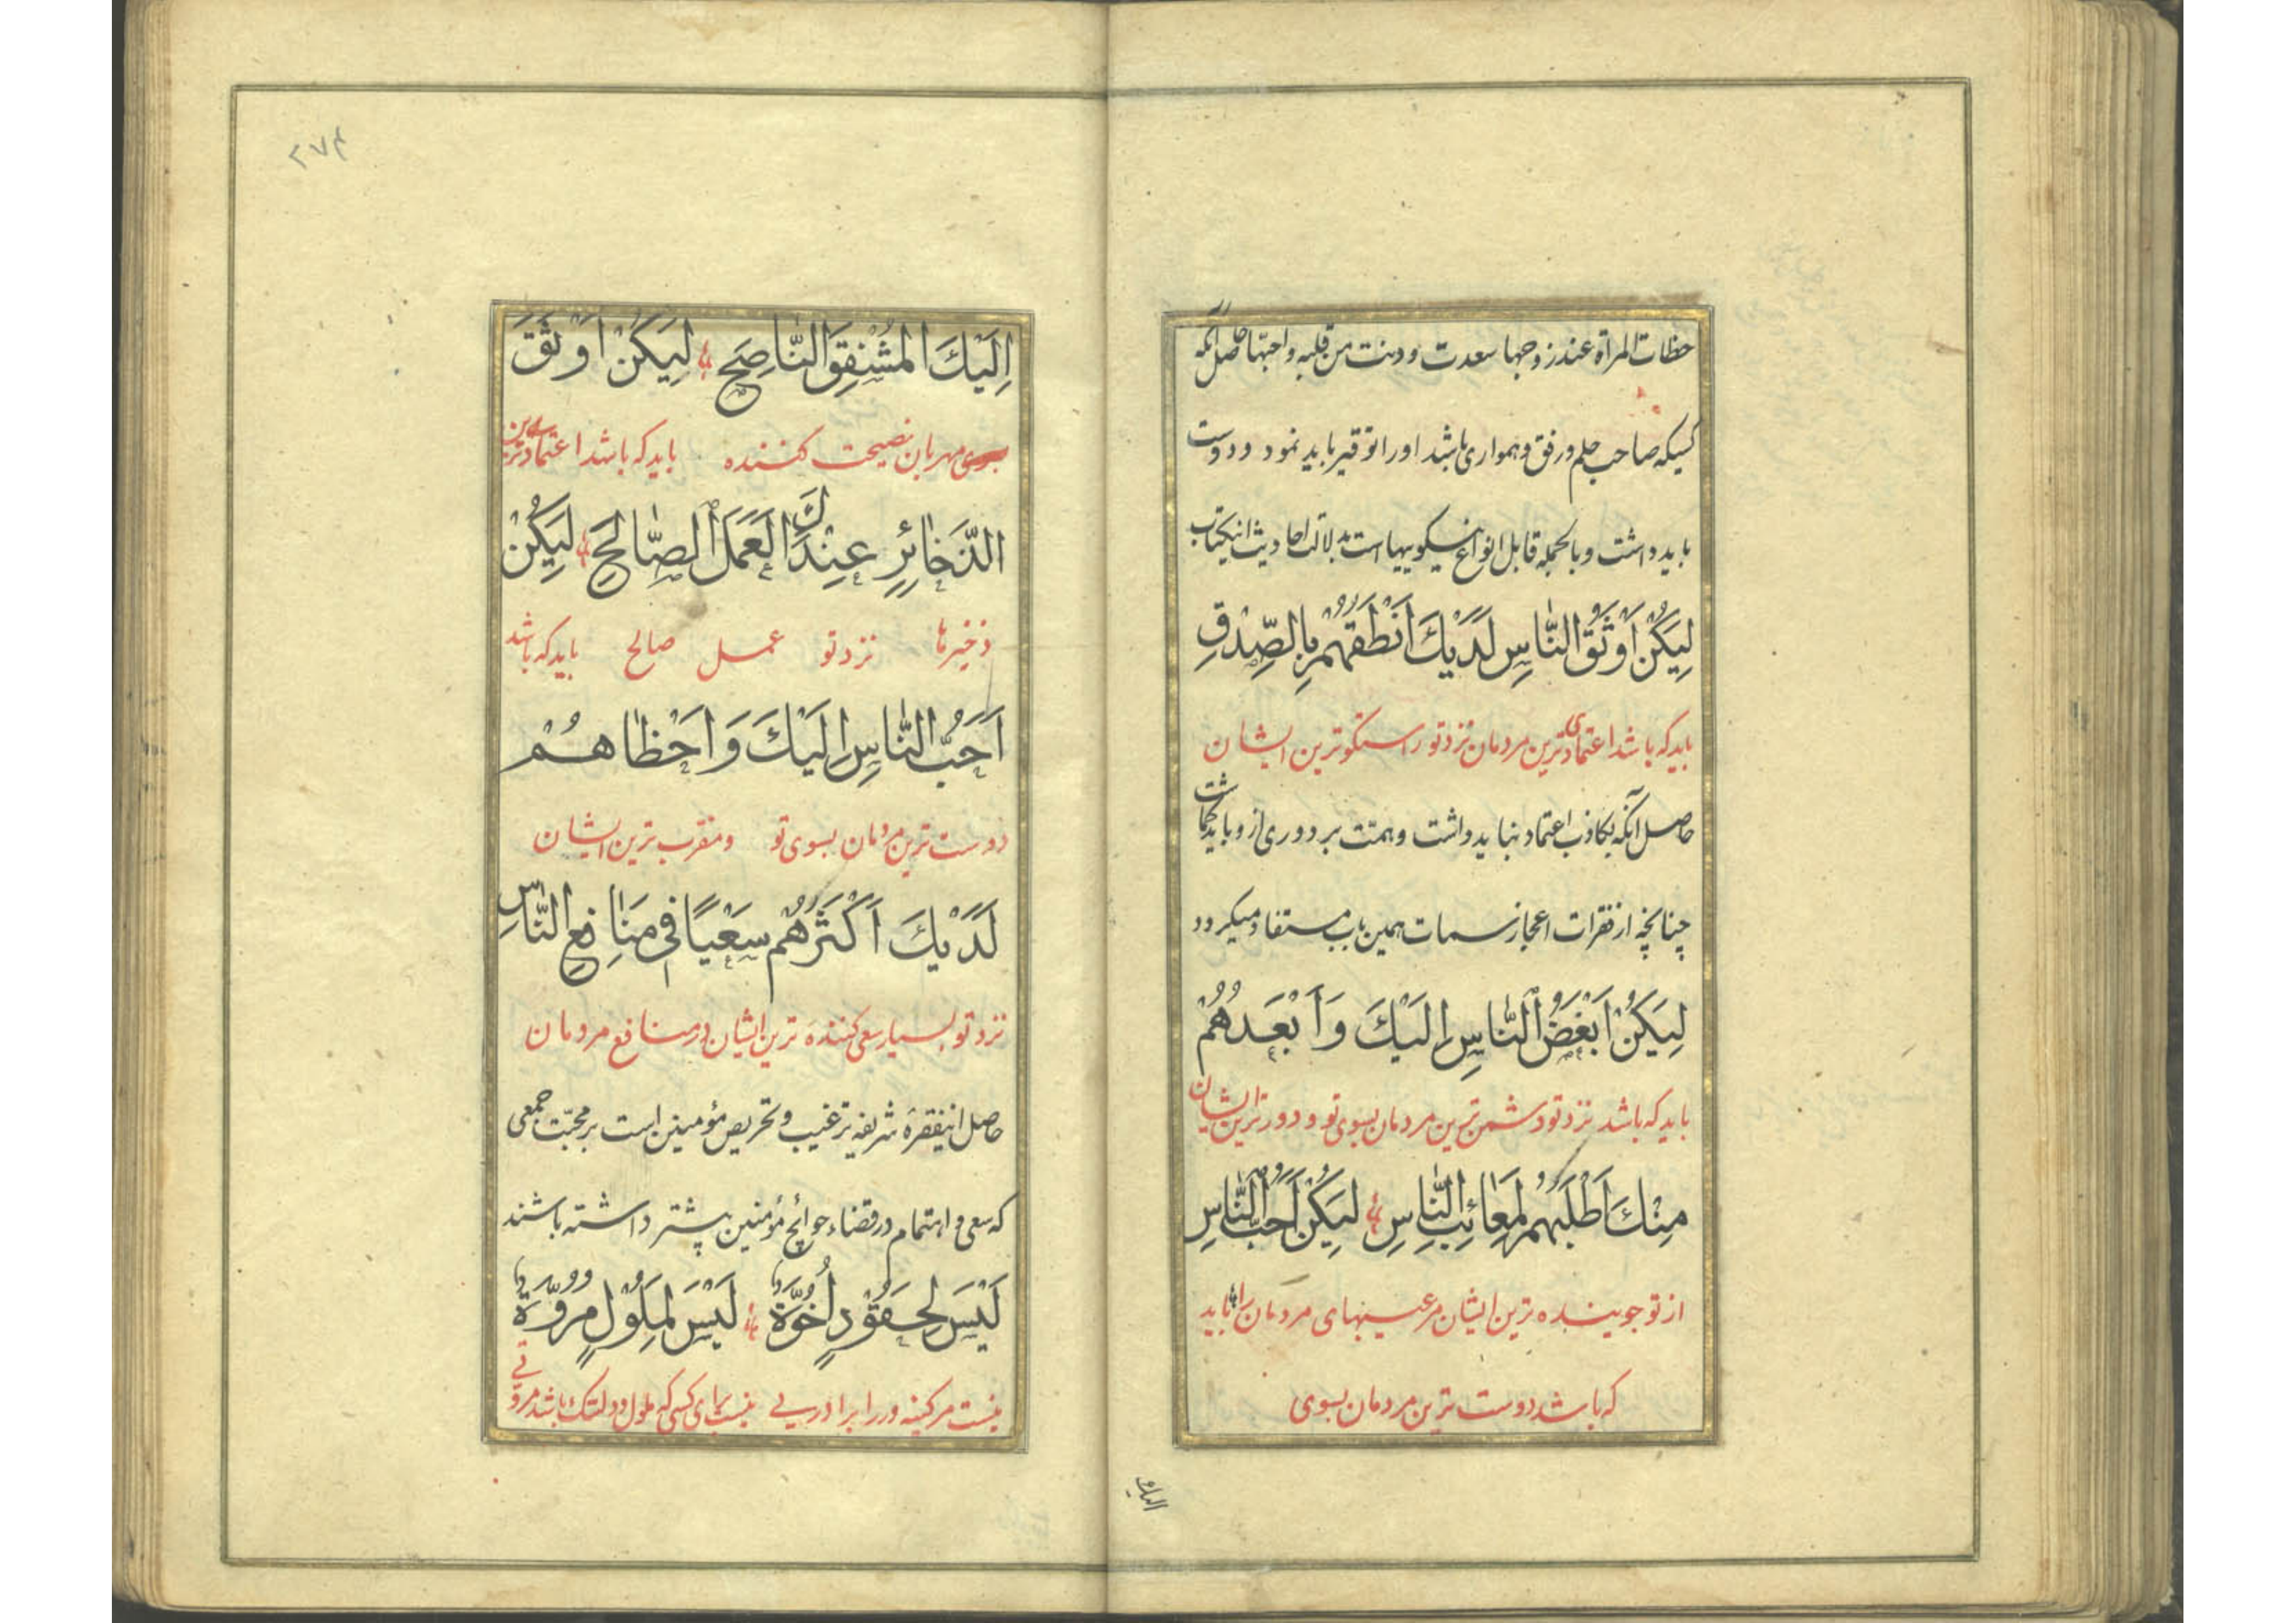 حظات المرأة عند زوجها سعدت و دنت من قلبه و احبّها حاصل آنکه
کسیکه صاحب حلم و رفق و همواری باشد او را توقیر باید نمود و دوست
باید داشت و بالجمله قابل انواع نیکوییها است بدلالت احادیث اینکتاب
لِيَكُنْ أَوْثَقُ النَّاسِ لَدَيْكَ أَنْطَقَهُمْ بِالصِّدْقِ
باید که باشد اعتمادی ترین مردمان نزد تو راستکوترین ایشان
حاصل آنکه بکاذب اعتماد نباید داشت و همت بر دوری از و باید کماشت
چنانچه از فقرات اعجاز سمات همین باب مستفاد میکردد
لِيَكُنْ أَبْغَضُ النَّاسِ إِلَيْكَ وَأَبْعَدُهُمْ
باید که باشد نزد تو دشمن ترین مردمان بسوی تو و دورترین ایشان
مِنْكَ أَطْلَبَهُمْ لِمَعَائِبِ النَّاسِ لِيَكُنْ أَحَبُّ النَّاسِ
از تو جوینده ترین ایشان مر عیبهای مردمان را باید
که باشد دوست ترین مردمان بسوی
الیک
۲۷۴
إِلَيْكَ الْمُشْفِقَ النَّاصِحَ لِيَكُنْ أَوْثَقَ
بسوی مهربان نصیحت کننده باید که باشد اعتمادی ترین
الذَّخَائِرِ عِنْدَكَ الْعَمَلَ الصَّالِحَ لِيَكُنْ
ذخیرها نزد تو عمل صالح باید که باشد
أَحَبُّ النَّاسِ إِلَيْكَ وَأَحْظَاهُمْ
دوست ترین مردمان بسوی تو و مقرب ترین ایشان
لَدَيْكَ أَكْثَرُهُمْ سَعْيًا فِي مَنَافِعِ النَّاسِ
نزد تو بسیار سعی کننده ترین ایشان در منافع مردمان
حاصل اینفقرهٔ شریفه ترغیب و تحریص مؤمنین است بر محبّت جمعی
که سعی و اهتمام در قضاء حوائج مؤمنین بیشتر داشته باشند
لَيْسَ لِحَقُوْدٍ أُخُوَّةٌ لَيْسَ لِمَلُوْلٍ مُرُوَّةٌ
نیست مر کینه ور را برادریی نیست برای کسی که ملول و دلتنک باشد مروّتی